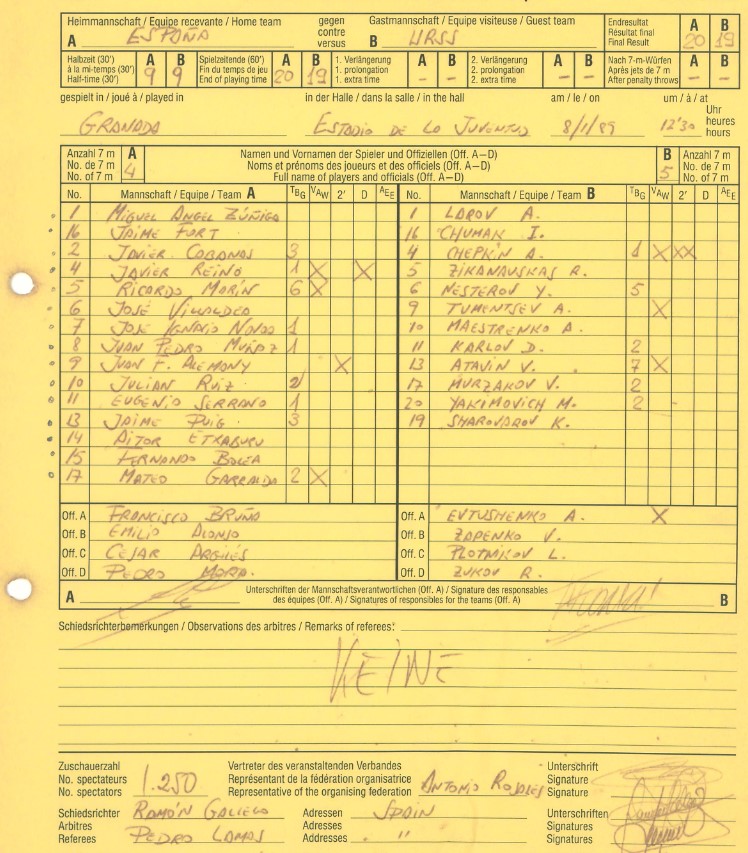 Heimmannschaft / Equipe recevante / Home team gegen Gastmannschaft / Equipe visiteuse / Guest team Endresultat A B
contre Résultat final
A ESPAÑA versus B URSS Final Result 20 19
Halbzeit (30') A B Spielzeitende (60') A B 1. Verlängerung A B 2. Verlängerung A B Nach 7-m-Würfen A B
à la mi-temps (30') Fin du temps de jeu 1. prolongation 2. prolongation Après jets de 7 m
Half-time (30') 9 9 End of playing time 20 19 1. extra time - - 2. extra time - - After penalty throws - -
gespielt in / joué à / played in in der Halle / dans la salle / in the hall am / le / on um / à / at
Uhr
GRANADA ESTADIO DE LA JUVENTUD 8/1/89 12'30 heures
hours
Anzahl 7 m A Namen und Vornamen der Spieler und Offiziellen (Off. A–D) B Anzahl 7 m
No. de 7 m 4 Noms et prénoms des joueurs et des officiels (Off. A–D) 5 No. de 7 m
No. of 7 m Full name of players and officials (Off. A–D) No. of 7 m
No. Mannschaft / Equipe / Team A TBG VAW 2' D AEE No. Mannschaft / Equipe / Team B TBG VAW 2' D AEE
1 MIGUEL ANGEL ZÚÑIGA 1 LAROV A.
16 JAIME FORT 16 CHUMAK I.
2 JAVIER CABANAS 3 4 CHEPKIN A. 1 X XX
4 JAVIER REINO 1 X X 5 ZIKANAUSKAS R.
5 RICARDO MARÍN 6 X 6 NESTEROV Y. 5
6 JOSÉ VILLALDEA 9 TUMENTSEV A. X
7 JOSE IGNACIO NOVOA 1 10 MAESTRENKO A.
8 JUAN PEDRO MUÑOZ 1 11 KARLOV D. 2
9 JUAN F. ALEMONY X 13 ATAVIN V. 7 X
10 JULIAN RUIZ 2 17 MURZAKOV V. 2
11 EUGENIO SERRANO 1 20 YAKIMOVICH M. 2 -
13 JAIME PUIG 3 19 SHAROVAROV K.
14 AITOR ETXABURU
15 FERNANDO BOLEA
17 MATEO GARRALDA 2 X
Off. A FRANCISCO BRUÑO Off. A EVTUSHENKO A. X
Off. B EMILIO ALONSO Off. B ZAPENKO V.
Off. C CESAR ARGILÉS Off. C PLOTNIKOV L.
Off. D PEDRO MORA. Off. D ZUKOV R.
A Unterschriften der Mannschaftsverantwortlichen (Off. A) / Signature des responsables B
des équipes (Off. A) / Signatures of responsibles for the teams (Off. A)
Schiedsrichterbemerkungen / Observations des arbitres / Remarks of referees:
KEINE
Zuschauerzahl Vertreter des veranstaltenden Verbandes Unterschrift
No. spectateurs 1.250 Représentant de la fédération organisatrice ANTONIO ROSALES Signature
No. spectators Representative of the organising federation Signature
Schiedsrichter RAMÓN GALLEGO Adressen SPAIN Unterschriften
Arbitres Adresses Signatures
Referees PEDRO LAMAS Addresses " Signatures